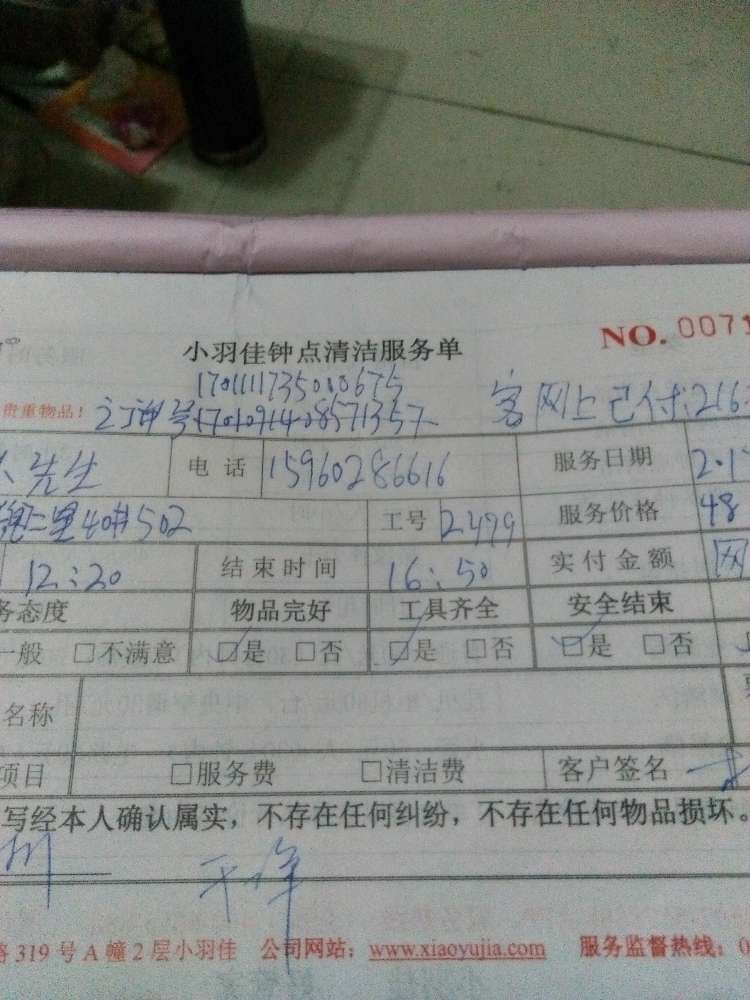 NO. 0071
小羽佳钟点清洁服务单
1701111735000675
贵重物品! 订单号 客网上已付:216
先生 电话 15960286616 服务日期 2.1
二里40#502 工号 2499 服务价格 48
12:20 结束时间 16:50 实付金额 网
务态度 物品完好 工具齐全 安全结束
一般 □不满意 ☑是 □否 ☑是 □否 ☑是 □否
名称
项目 □服务费 □清洁费 客户签名
写经本人确认属实，不存在任何纠纷，不存在任何物品损坏。
路 319 号 A 幢 2 层小羽佳 公司网站：www.xiaoyujia.com 服务监督热线：0